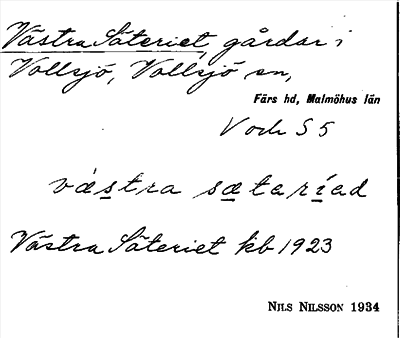 Västra Säteriet, gårdar i
Vollsjö, Vollsjö sn,
Färs hd, Malmöhus län
V och S 5
västra sætaríad
Västra Säteriet kb 1923
NILS NILSSON 1934